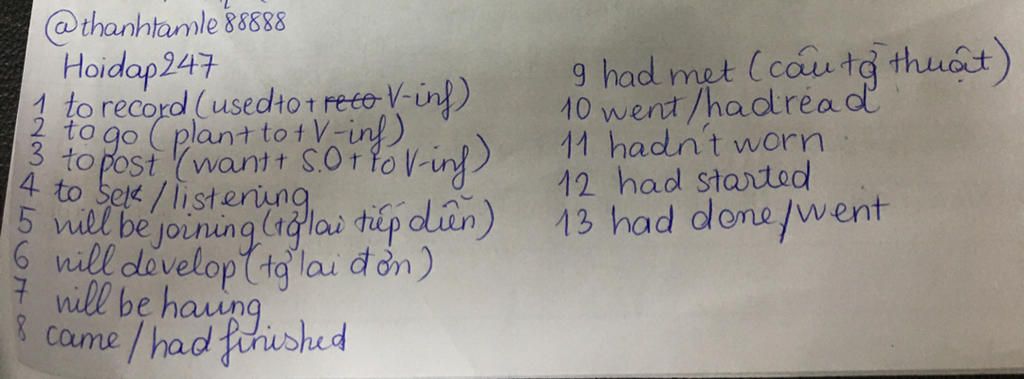 @thanhtamle88888
Hoidap247
1 to record (used to + reco V-inf)
2 to go (plan + to + V-inf)
3 to post (want + S.O + to V-inf)
4 to / listening
5 will be joining (tg lai tiếp diễn)
6 will develop (tg lai đơn)
7 will be having
8 came / had finished
9 had met (câu tg thuật)
10 went / had read
11 hadn't worn
12 had started
13 had done / went